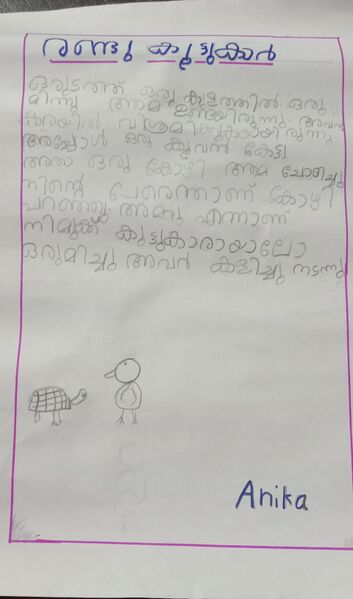 രണ്ടു കൂട്ടുകാർ
ഒരുടത്ത് ഒരു കുളത്തിൽ ഒരു
മിന്നു ആമ ഉണ്ടായിരുന്നു. അവൻ
കരയിൽ വിശ്രമിക്കുകയായിരുന്നു
അപ്പോൾ ഒരു കൂവൻ കേട്ടു
അതാ ഒരു കോഴി ആമ ചോദിച്ചു
നിന്റെ പേരെന്താണ് കോഴി
പറഞ്ഞു അമ്മു എന്നാണ്
നിമുക്ക് കൂട്ടുകാരായാലോ
ഒരുമിച്ചു അവർ കളിച്ചു നടന്നു
Anika